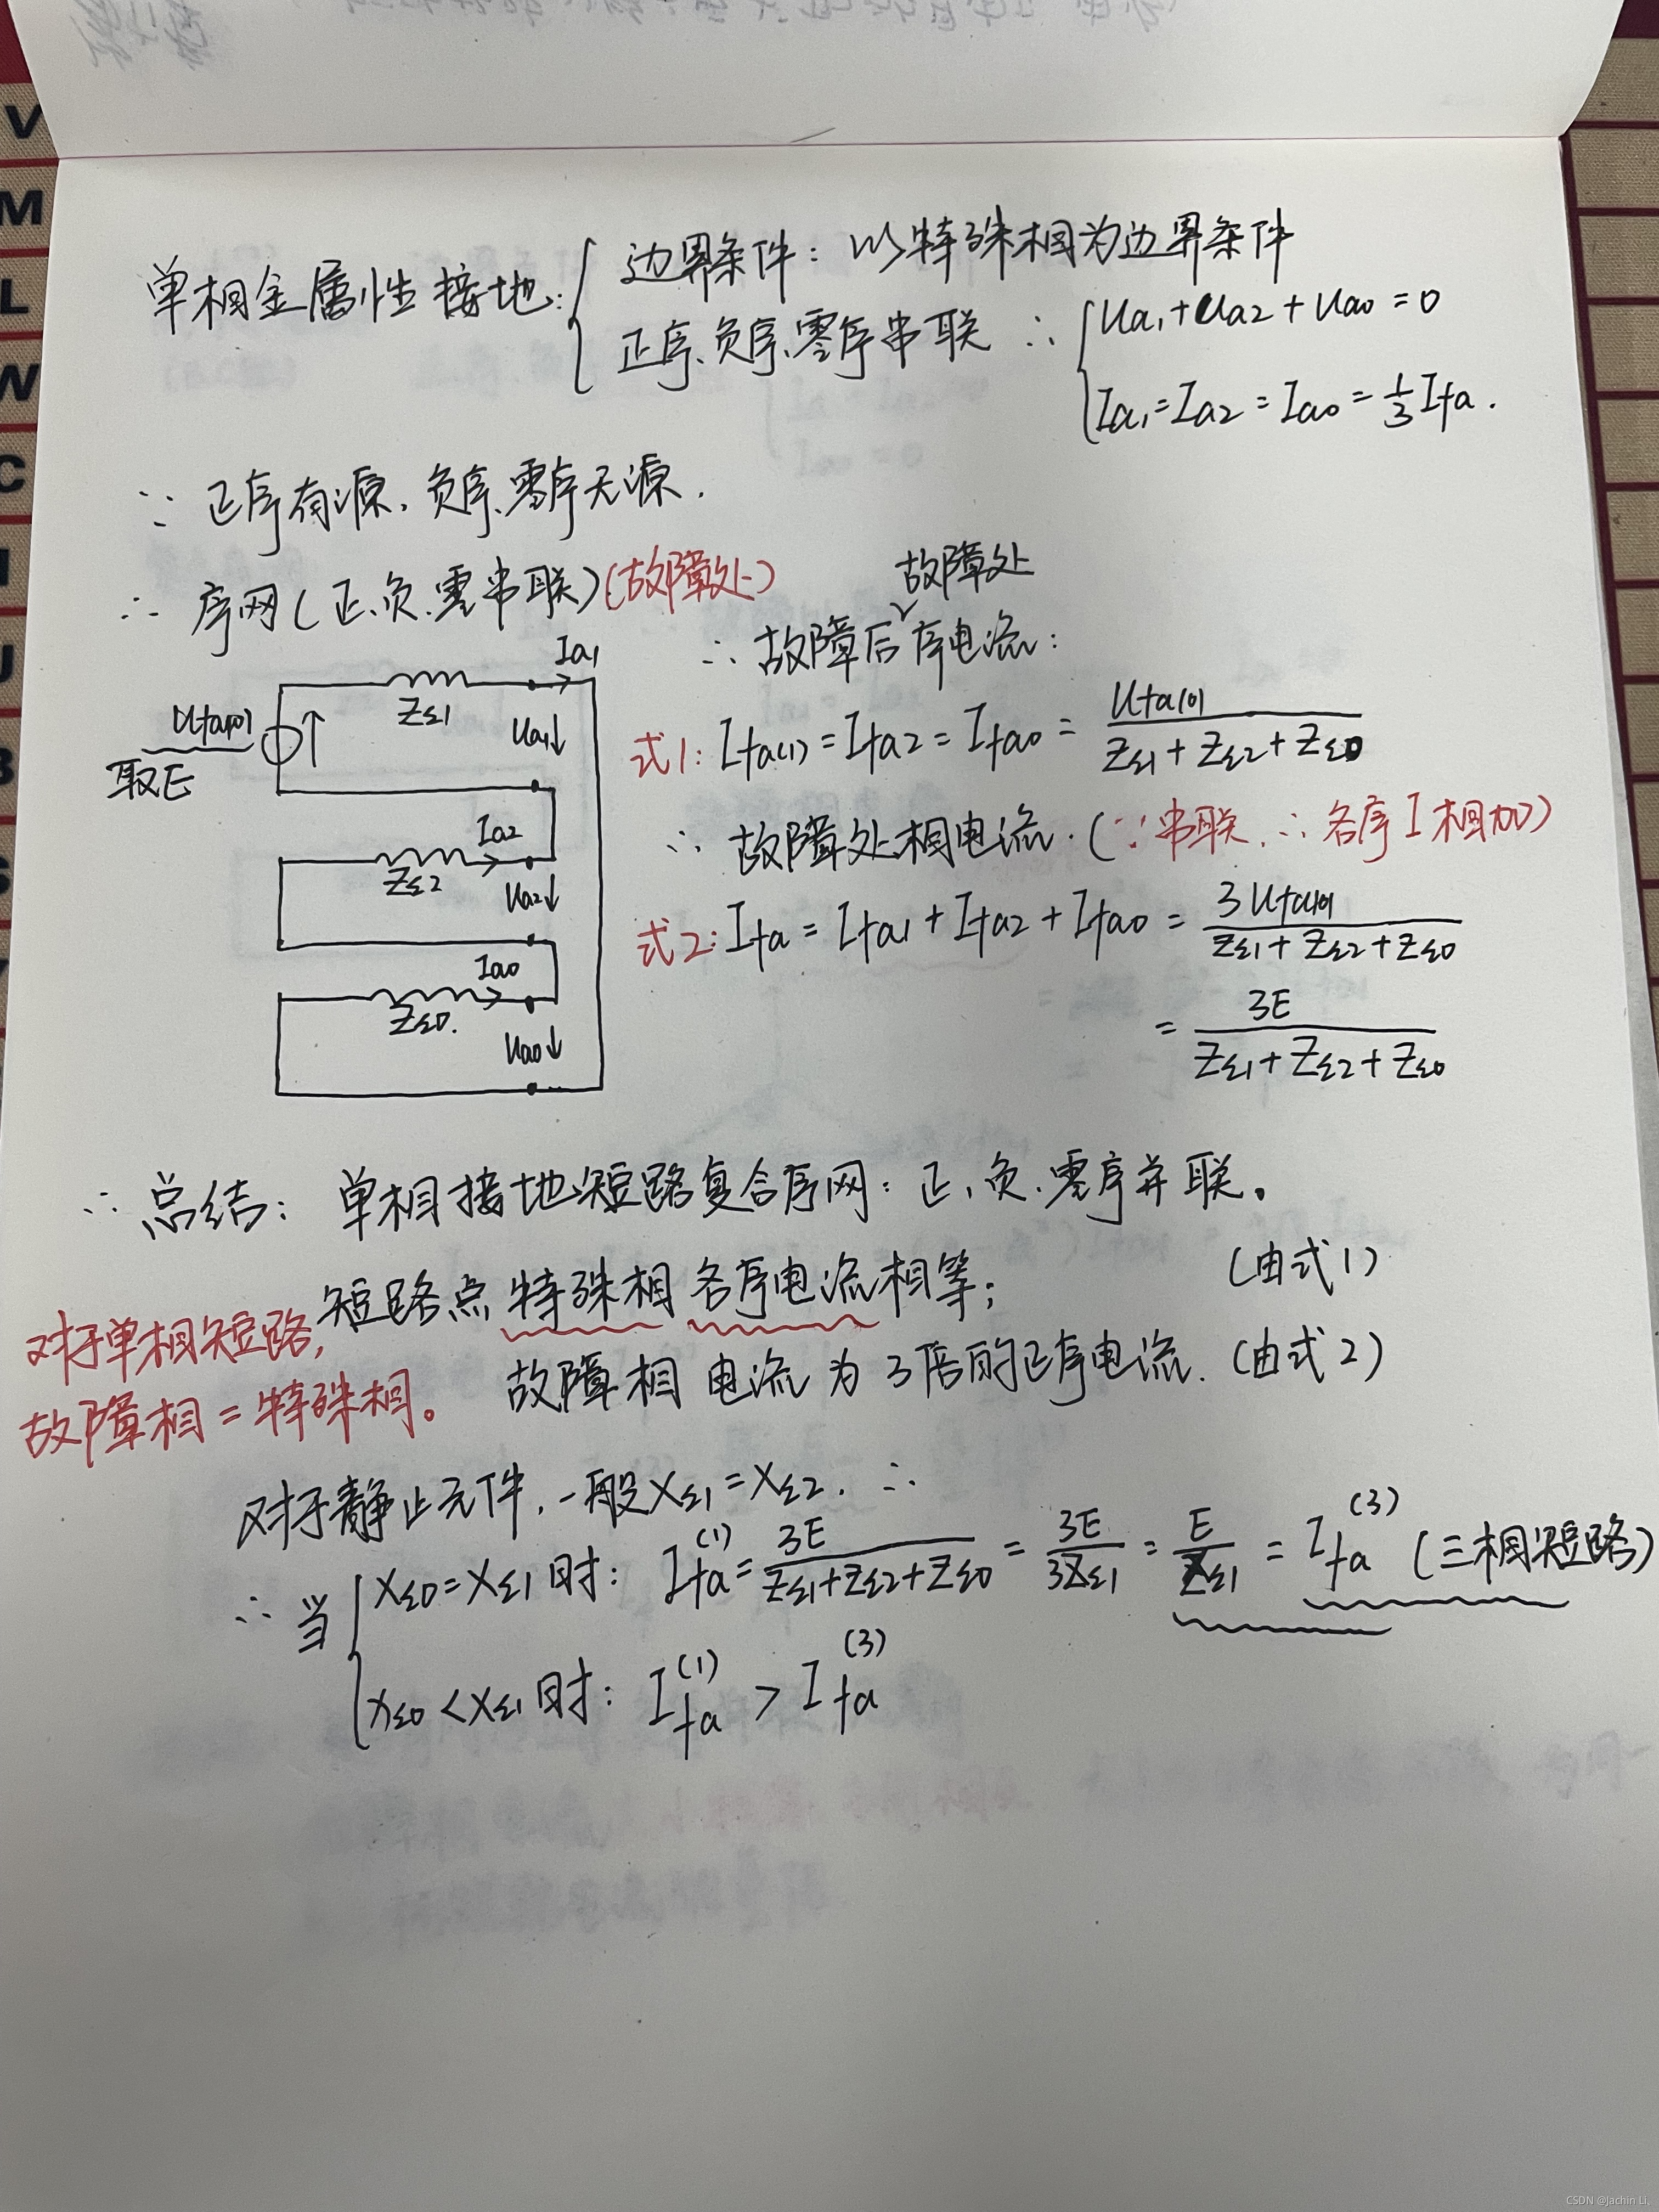 单相金属性接地:
边界条件: 以特殊相为边界条件
正序、负序、零序串联 ∴
Ua1+Ua2+Ua0=0
Ia1=Ia2=Ia0=1/3 Ifa.
∵ 正序有源、负序、零序无源.
∴ 序网(正、负、零串联)(故障处)
故障处
∴ 故障后序电流:
Ufa(0)
取E
Ia1
ZΣ1
Ua1↓
Ia2
ZΣ2
Ua2↓
Ia0
ZΣ0.
Ua0↓
式1: Ifa(1)=Ifa2=Ifa0= Ufa(0) / (ZΣ1+ZΣ2+ZΣ0)
∴ 故障处相电流.(∵串联,∴各序I相加)
式2: Ifa=Ifa1+Ifa2+Ifa0= 3Ufa(0) / (ZΣ1+ZΣ2+ZΣ0)
= 3E / (ZΣ1+ZΣ2+ZΣ0)
∴ 总结: 单相接地短路复合序网: 正、负、零序并联。
短路点特殊相各序电流相等; (由式1)
对于单相短路,
故障相=特殊相。
故障相 电流为3倍的正序电流. (由式2)
对于静止元件,一般XΣ1=XΣ2. ∴
∴ 当
XΣ0=XΣ1时: Ifa(1)= 3E / (ZΣ1+ZΣ2+ZΣ0) = 3E / 3ZΣ1 = E / ZΣ1 = Ifa(3) (三相短路)
XΣ0<XΣ1时: Ifa(1) > Ifa(3)
V
M
L
W
C
I
U
B
S
CSDN @Jachin Li,